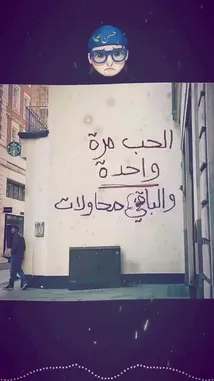 حسن
الحب مرة
واحدة
والباقي محاولات